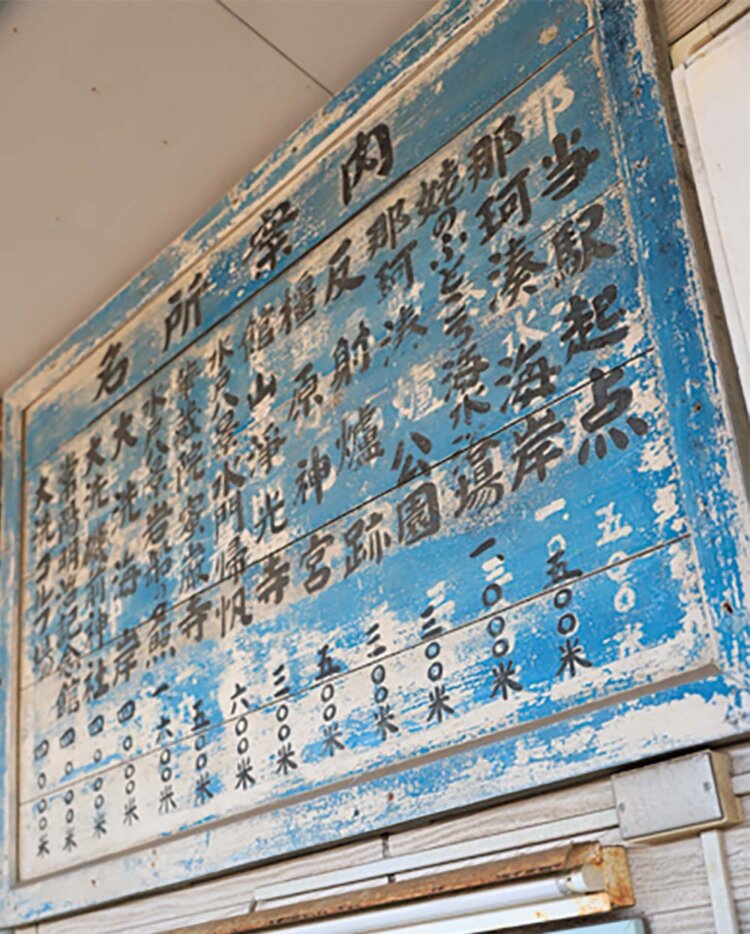 名所案内
当駅起点
那珂湊海岸 一.五〇〇米
姥のふところ海水 場 一.三〇〇米
那珂湊公園 三〇〇米
反射爐跡 三〇〇米
橿原神宮 五〇〇米
館山淨光寺 三〇〇米
水戸八景水門帰帆 六〇〇米
華蔵院 蔵寺 五〇〇米
水戸八景岩船の 一六〇〇米
大洗海岸 四〇〇〇米
大洗磯前神社 四〇〇〇米
常陽明治記念館 四〇〇〇米
大洗ゴルフ場 四〇〇〇米